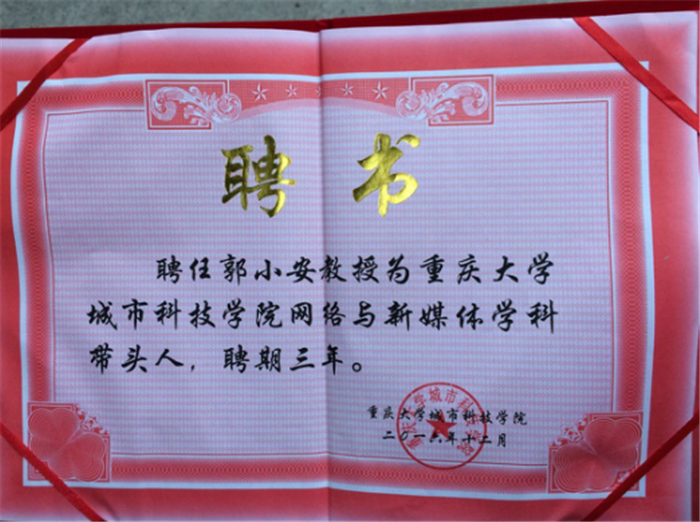 聘书
聘任郭小安教授为重庆大学
城市科技学院网络与新媒体学科
带头人，聘期三年。
重庆大学城市科技学院
二〇一六年十二月
重庆大学城市科技学院